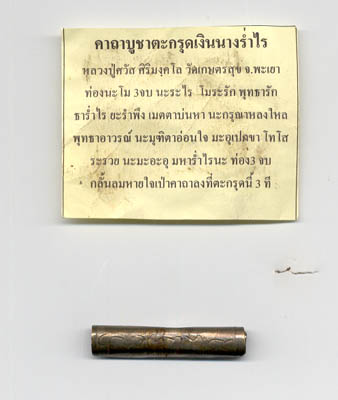 คาถาบูชาตะกรุดเงินนางร่ำไร
หลวงปู่ศวัส ศิริมงฺคโล วัดเกษตรสุข จ.พะเยา
ท่องนะโม 3จบ นะระไร โมระรัก พุทธารัก
ธาร่ำไร ยะรำพึง เมตตาบ่นหา นะกรุณาหลงใหล
พุทธาอาวรณ์ นะมุฑิตาอ่อนใจ มะอุเปกขา โทโส
ระรวย นะมะอะอุ มหาร่ำไรนะ ท่อง3 จบ
กลั้นลมหายใจเป่าคาถาลงที่ตะกรุดนี้ 3 ที